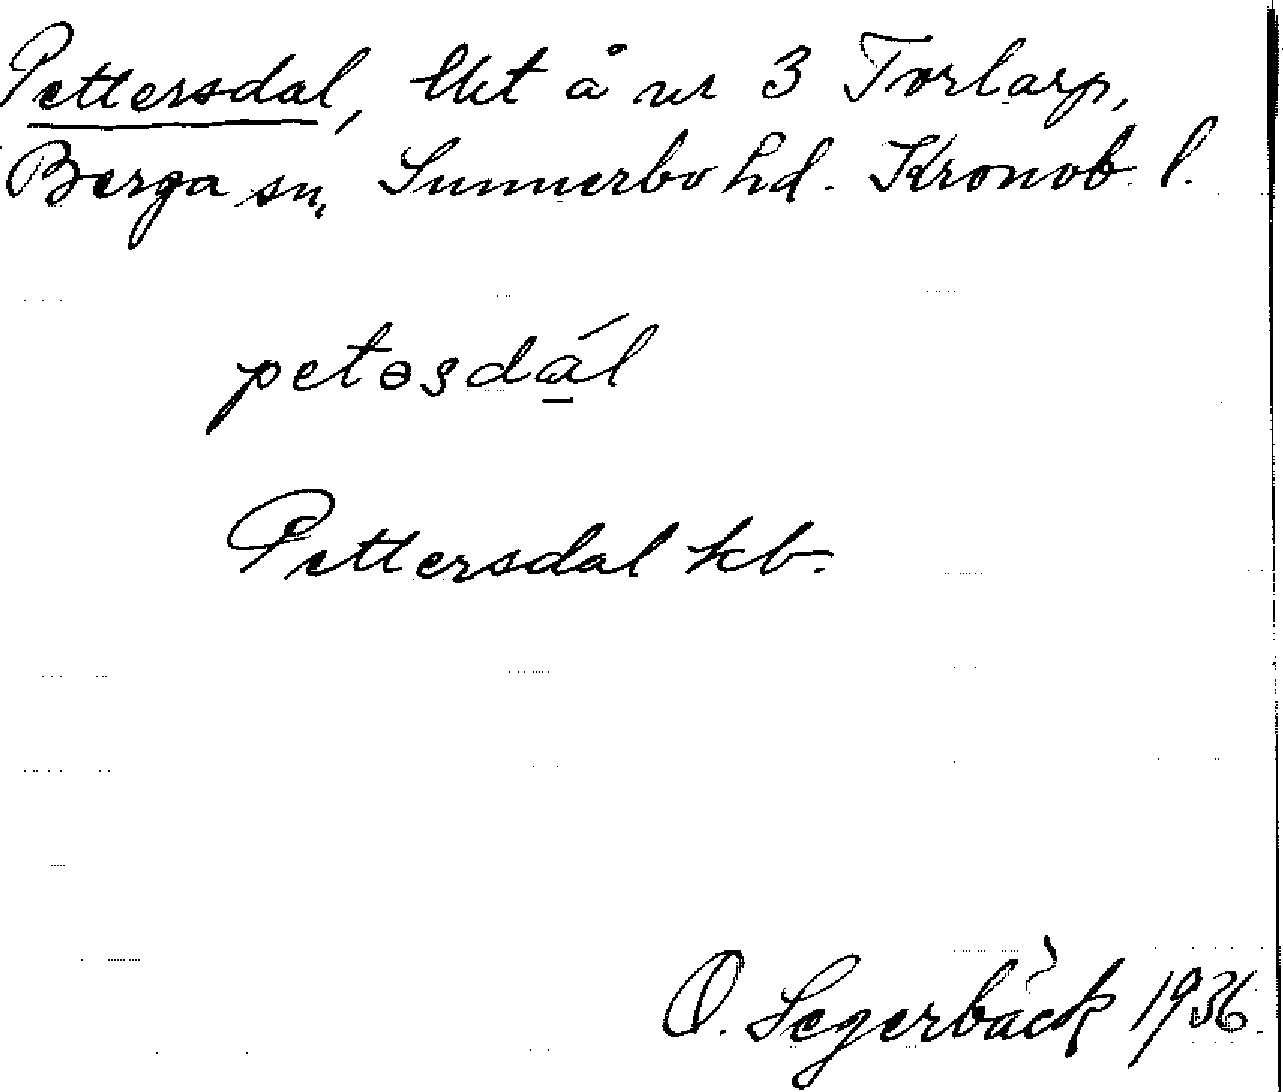 Pettersdal, lht å nr 3 Torlarp,
Berga sn, Sunnerbo hd. Kronob. l.
petəşdál
Pettersdal kb.
O. Segerbäck 1936.